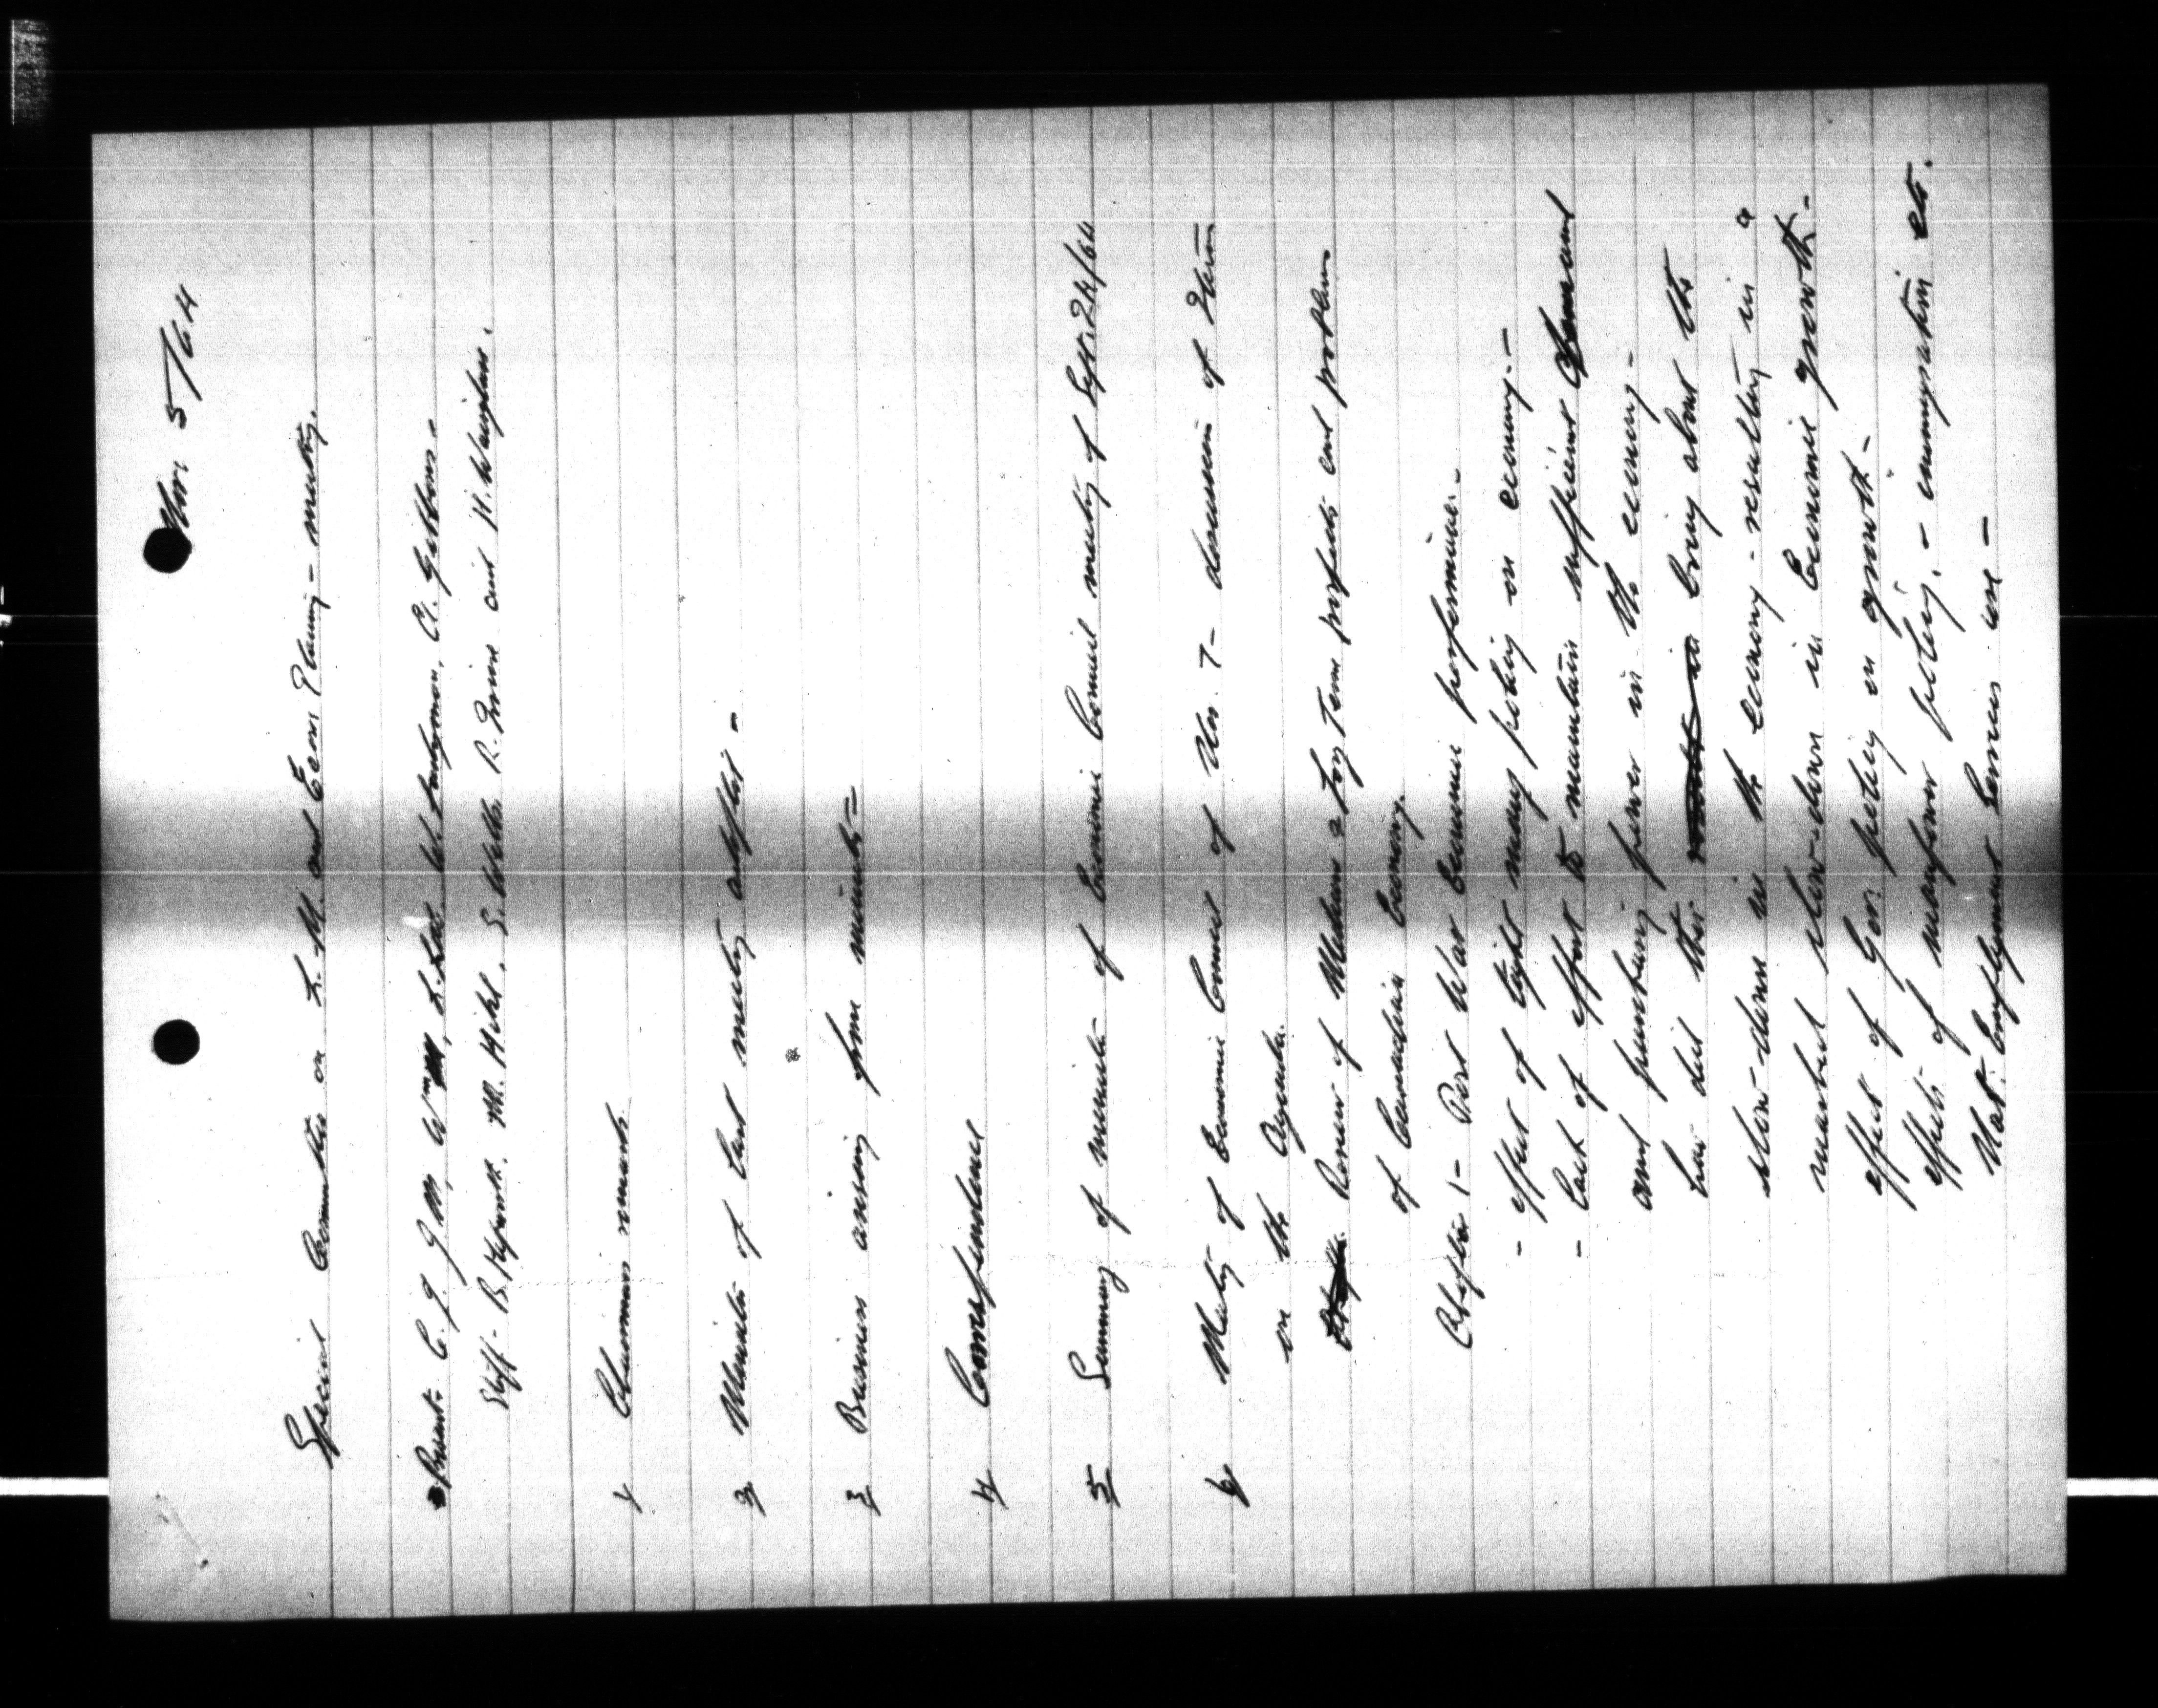 Nov. 5/64
Special Committee on L. M. and Econ Planning - meeting.
Present: C. J. G. M, Wm M, L. W. A. Gibbons -
Staff - B. M. Hikl. S. Wells R. and H.
1/ Chairmans remarks
2/ Minutes of last meeting adopted -
3/ Business arising from minutes -
4/ Correspondence
5/ Summary of minutes of Economic Council meeting of Sept. 24/64
6/ Meeting of Economic Council of Nov. 7 - discussion of Items
on the Agenda.
Review of Medium & Long Term prospects and problems
of Canadian Economy.
Chapter 1 - Post War Economic performance. -
- effect of tight money policy on economy. -
- lack of effort to maintain sufficient demand
and purchasing power in the economy -
how did this bring about the
slow-down in the economy - resulting in a
marked slow-down in Economic growth. -
effect of Gov. policy on growth -
effects of manpower policy, - immigration etc.
Nat. Employment Service use -